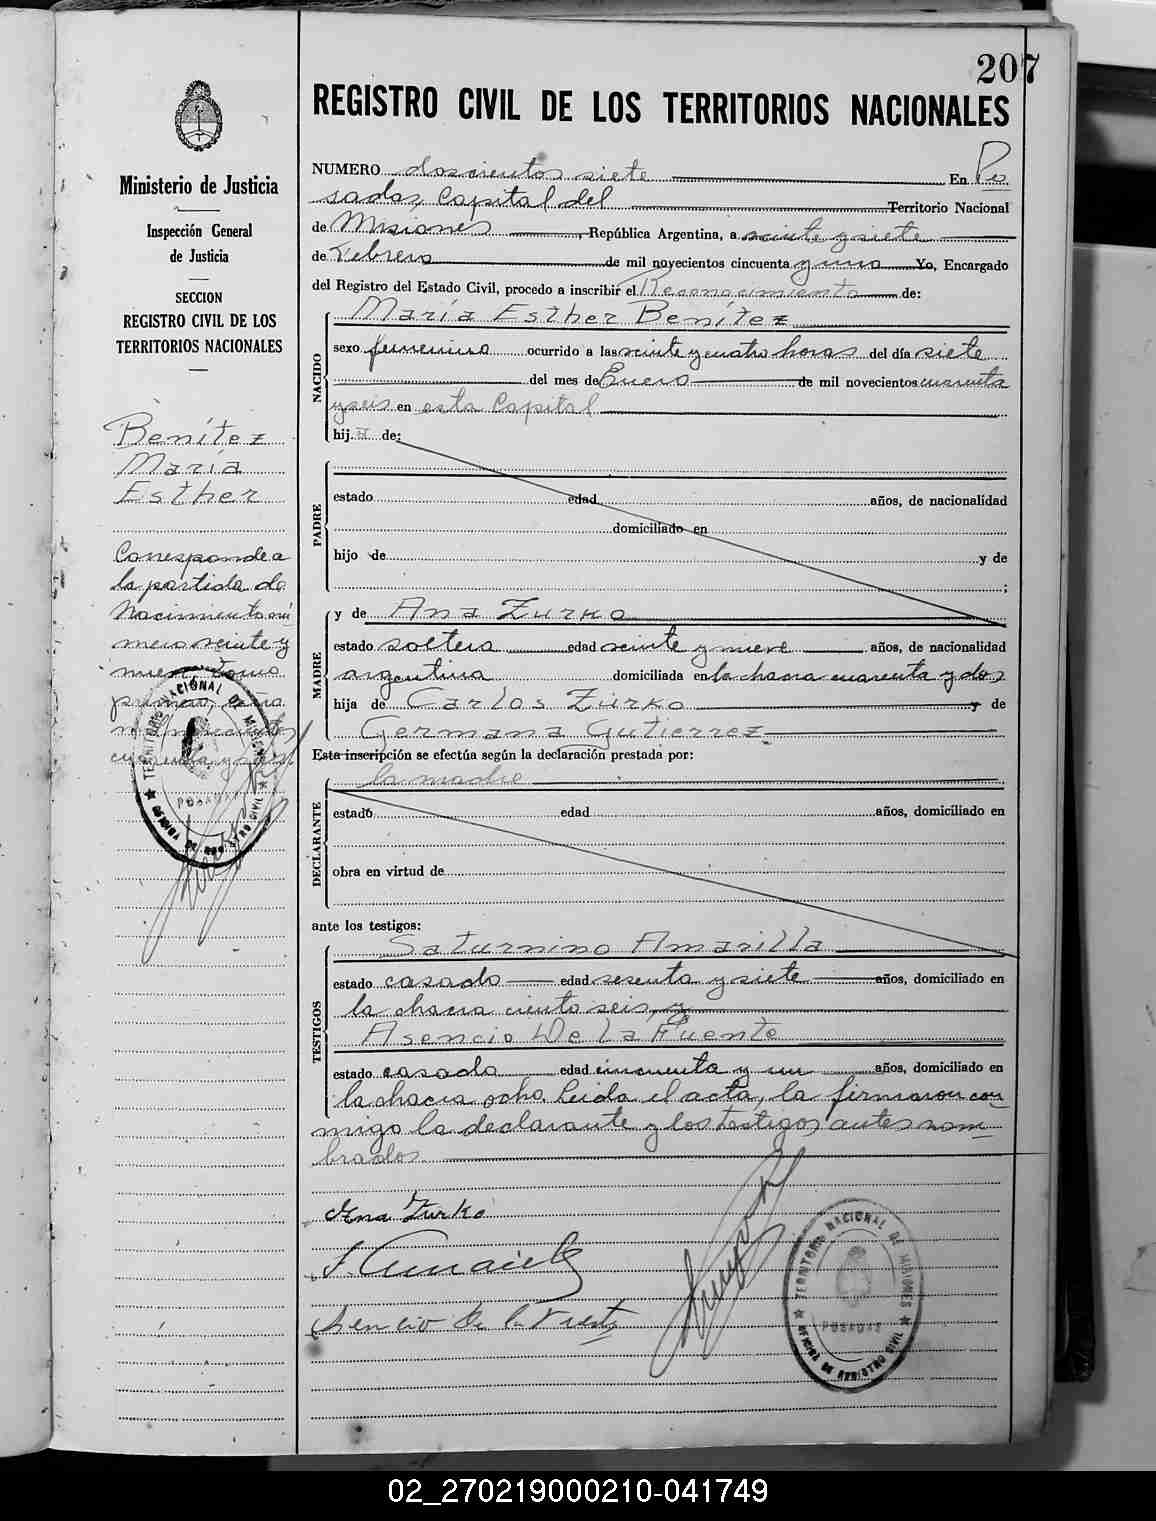 207
REGISTRO CIVIL DE LOS TERRITORIOS NACIONALES
Ministerio de Justicia
Inspección General
de Justicia
SECCION
REGISTRO CIVIL DE LOS
TERRITORIOS NACIONALES
Benítez
María
Esther
Corresponde a
la partida de
Nacimiento nú
mero veinte y
nueve, tomo
primero, año
mil novecientos
cuarenta y seis
TERRITORIO NACIONAL DE MISIONES
POSADAS
OFICINA DE REGISTRO CIVIL
NUMERO doscientos siete En Po
sadas Capital del Territorio Nacional
de Misiones, República Argentina, a veinte y siete
de Febrero de mil novecientos cincuenta y uno Yo, Encargado
del Registro del Estado Civil, procedo a inscribir el Reconocimiento de:
NACIDO
María Esther Benítez
sexo femenino ocurrido a las veinte y cuatro horas del día siete
del mes de Enero de mil novecientos cuarenta
y seis en esta Capital
hij a de:
PADRE
estado edad años, de nacionalidad
domiciliado en
hijo de y de
;
MADRE
y de Ana Zurko
estado soltera edad veinte y nueve años, de nacionalidad
argentina domiciliada en la chacra cuarenta y dos
hija de Carlos Zurko y de
Germana Gutierrez
Esta inscripción se efectúa según la declaración prestada por:
DECLARANTE
la madre
estado edad años, domiciliado en
obra en virtud de
ante los testigos:
TESTIGOS
Saturnino Amarilla
estado casado edad sesenta y siete años, domiciliado en
la chacra ciento seis, y
Asencio De La Fuente
estado casado edad cincuenta y un años, domiciliado en
la chacra ocho. Leida el acta, la firmaron con
migo la declarante y los testigos antes nom
brados
Ana Zurko
S. Amarilla
Asencio de la Fuente
TERRITORIO NACIONAL DE MISIONES
POSADAS
OFICINA DE REGISTRO CIVIL
02_270219000210-041749